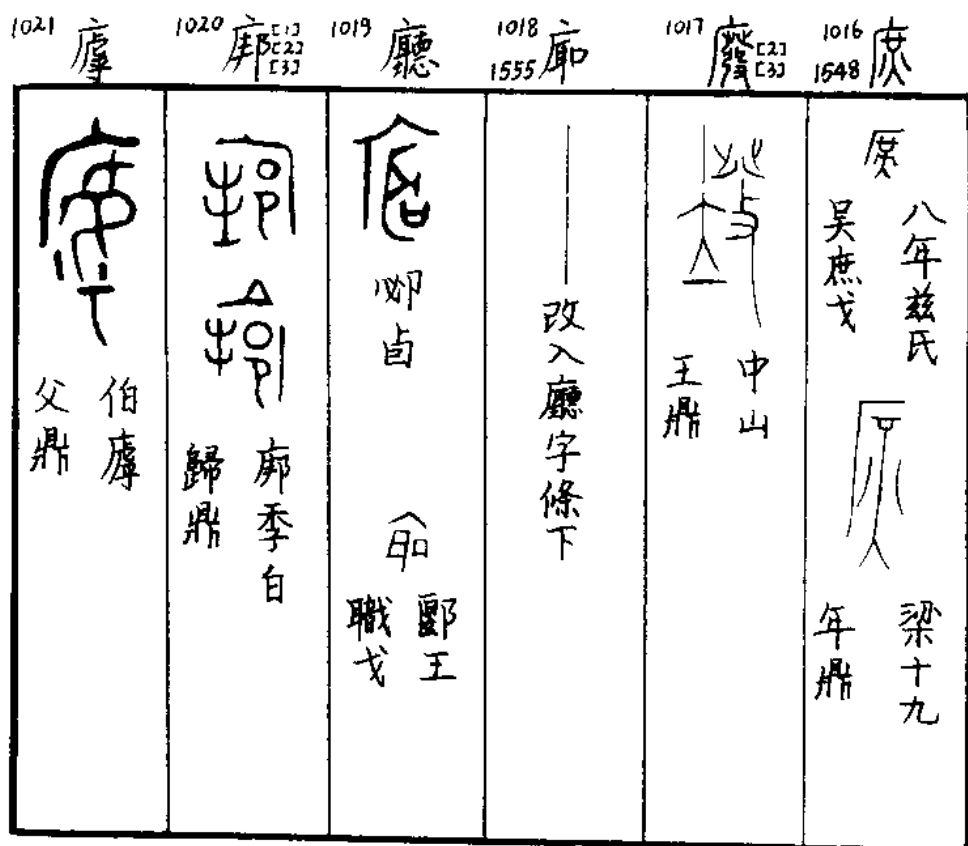 1016
1548 庶
八年茲氏
吴庶戈
梁十九
年鼎
1017 廢[2][3]
中山
王鼎
1018
1555 廊
——改入廳字條下
1019 廳
卣
郾王
職戈
1020 [1][2][3]
季白
歸鼎
1021
伯
父鼎